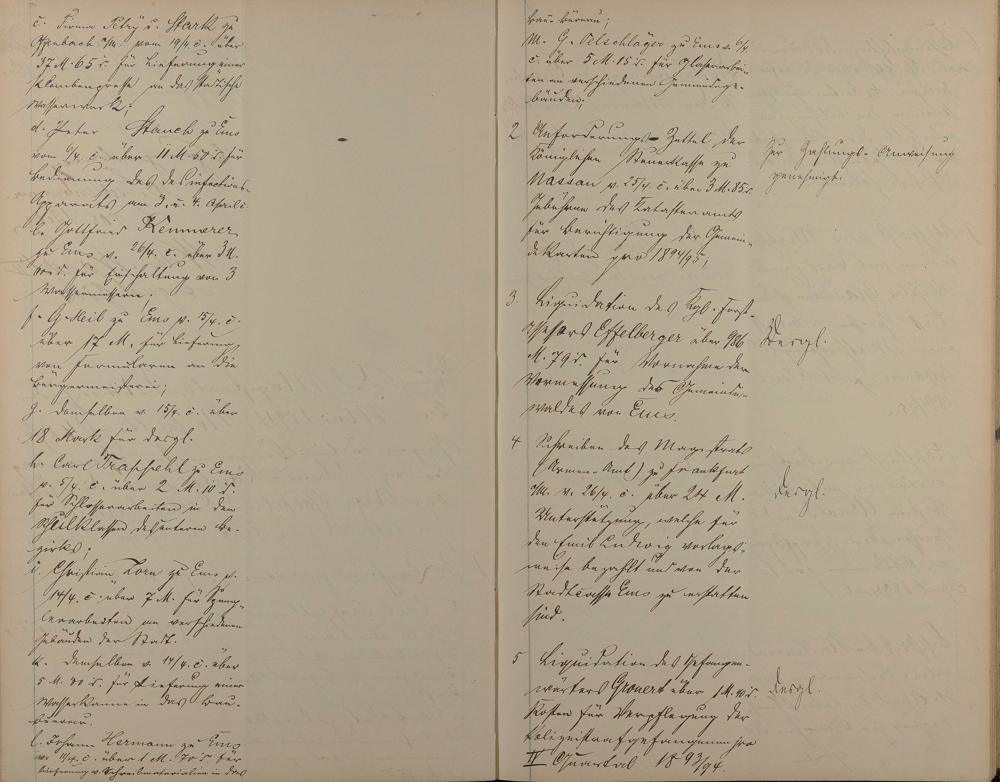 c. Firma Petry u. Stark zu
Offenbach a/M. vom 19/4. c. über
37 M. 65 d. für Lieferung einer
Plombenpresse an das städtische
Wasserwerk;
d. Peter Stauch zu Ems
vom 6/4. c. über 11 M. 50 d. für
Bedienung des Desinfections-
Apparats am 3. u. 4. April c.
e. Gottfried Kemmerer
zu Ems v. 26/4. c. über 3 M.
für Einschaltung von 3
Wassermessern;
f. G. Heil zu Ems v. 15/4. c.
über 17 M. für Lieferung
von Formularen an die
Bürgermeisterei;
g. demselben v. 15/4. c. über
18 Mark für desgl.
h. Carl Trappehl zu Ems
v. 5/4. c. über 2 M. 10 d.
für Schlosserarbeiten in den
Schulklassen des unteren Be-
zirks;
i. Christian Korn zu Ems v.
14/4. c. über 7 M. für Speng-
lerarbeiten an verschiedenen
Gebäuden der Stadt.
k. demselben v. 14/4. c. über
5 M. 80 d. für Lieferung einer
Wasserkanne in das Bau-
büreau.
l. Johann Hermann zu Ems
v. 11/4. c. über 1 M. 70 d. für
Lieferung v. Schreibmaterialien in das
Bau-Büreau;
m. G. Oelschläger zu Ems v. 6/4.
c. über 5 M. 15 d. für Glaserarbei-
ten an verschiedenen Gemeindege-
bäuden;
2 Anforderungs-Zettel der
Königlichen Steuerkasse zu
Nassau v. 25/4. c. über 3 M. 85 d.
Gebühren des Katasteramts
für Berichtigung der Gemein-
dekarten pro 1894/95;
Zur Zahlungs-Anweisung
genehmigt.
3. Liquidation des Kgl. Forst-
assessors Effelberger über 986
M. 79 d. für Vornahme der
Vermessung des Gemeinde-
waldes von Ems.
Desgl.
4 Schreiben des Magistrats
(Armen-Amt) zu Frankfurt
a/M. v. 26/4. c. über 24 M.
Unterstützung, welche für
den Emil Ludwig vorlags-
weise bezahlt und von der
Stadtcasse Ems zu erstatten
sind.
desgl.
5 Liquidation des Gefangen-
wärters Gronert über 1 M. 40 d.
Kosten für Verpflegung der
Polizeistrafgefangenen pro
IV Quartal 1893/94.
desgl.